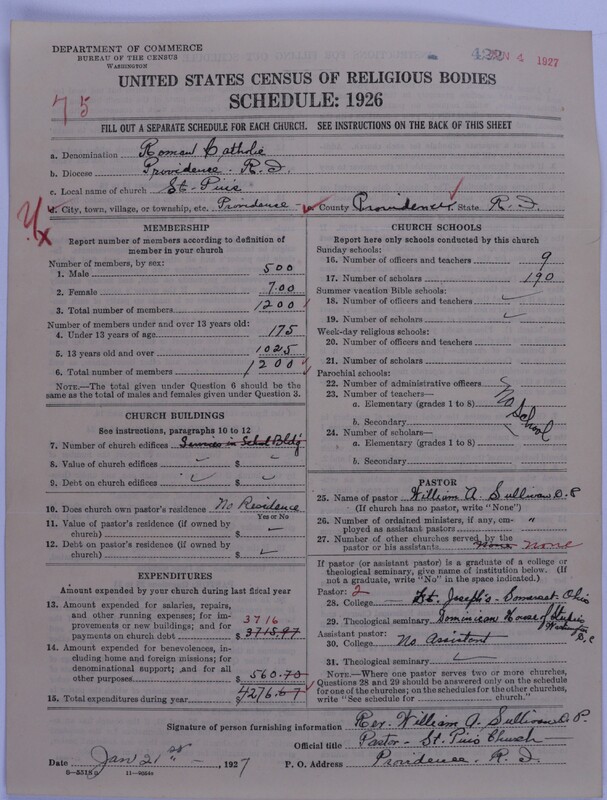 DEPARTMENT OF COMMERCE
BUREAU OF THE CENSUS
WASHINGTON
422 JAN 4 1927
UNITED STATES CENSUS OF RELIGIOUS BODIES
SCHEDULE: 1926
75
FILL OUT A SEPARATE SCHEDULE FOR EACH CHURCH. SEE INSTRUCTIONS ON THE BACK OF THIS SHEET
a. Denomination Roman Catholic
b. Diocese Providence R. I.
c. Local name of church St. Pius
d. City, town, village, or township, etc. Providence County Providence State R. I.
MEMBERSHIP
Report number of members according to definition of
member in your church
Number of members, by sex:
1. Male 500
2. Female 700
3. Total number of members 1200
Number of members under and over 13 years old:
4. Under 13 years of age 175
5. 13 years old and over 1025
6. Total number of members 1200
NOTE.—The total given under Question 6 should be
same as the total of males and females given under Question 3.
CHURCH BUILDINGS
See instructions, paragraphs 10 to 12
7. Number of church edifices Services in School Bldg
8. Value of church edifices $
9. Debt on church edifices $
10. Does church own pastor's residence No Residence
Yes or No
11. Value of pastor's residence (if owned by
church) $
12. Debt on pastor's residence (if owned by
church) $
EXPENDITURES
Amount expended by your church during last fiscal year
13. Amount expended for salaries, repairs,
and other running expenses; for im-
provements or new buildings; and for
payments on church debt $ 3715.97
3716
14. Amount expended for benevolences, in-
cluding home and foreign missions; for
denominational support; and for all
other purposes $ 560.70
15. Total expenditures during year $ 4276.67
CHURCH SCHOOLS
Report here only schools conducted by this church
Sunday schools:
16. Number of officers and teachers 9
17. Number of scholars 190
Summer vacation Bible schools:
18. Number of officers and teachers
19. Number of scholars
Week-day religious schools:
20. Number of officers and teachers
21. Number of scholars
Parochial schools:
22. Number of administrative officers
23. Number of teachers—
a. Elementary (grades 1 to 8) No School
b. Secondary
24. Number of scholars—
a. Elementary (grades 1 to 8)
b. Secondary
PASTOR
25. Name of pastor William A. Sullivan O. P.
(If church has no pastor, write "None")
26. Number of ordained ministers, if any, em-
ployed as assistant pastors "
27. Number of other churches served by the
pastor or his assistants None none
If pastor (or assistant pastor) is a graduate of a college or
theological seminary, give name of institution below. (If
not a graduate, write "No" in the space indicated.)
Pastor: 2
28. College St. Joseph's - Somerset, Ohio
29. Theological seminary Dominican House of Studies
D. C
Assistant pastor:
30. College No Assistant
31. Theological seminary
NOTE.—Where one pastor serves two or more churches,
Questions 28 and 29 should be answered only on the schedule
for one of the churches; on the schedules for the other churches,
write "See schedule for church."
Signature of person furnishing information Rev. William A. Sullivan O. P.
Official title Pastor - St. Pius Church
Date Jan 21st, 1927 P. O. Address Providence, R. I.